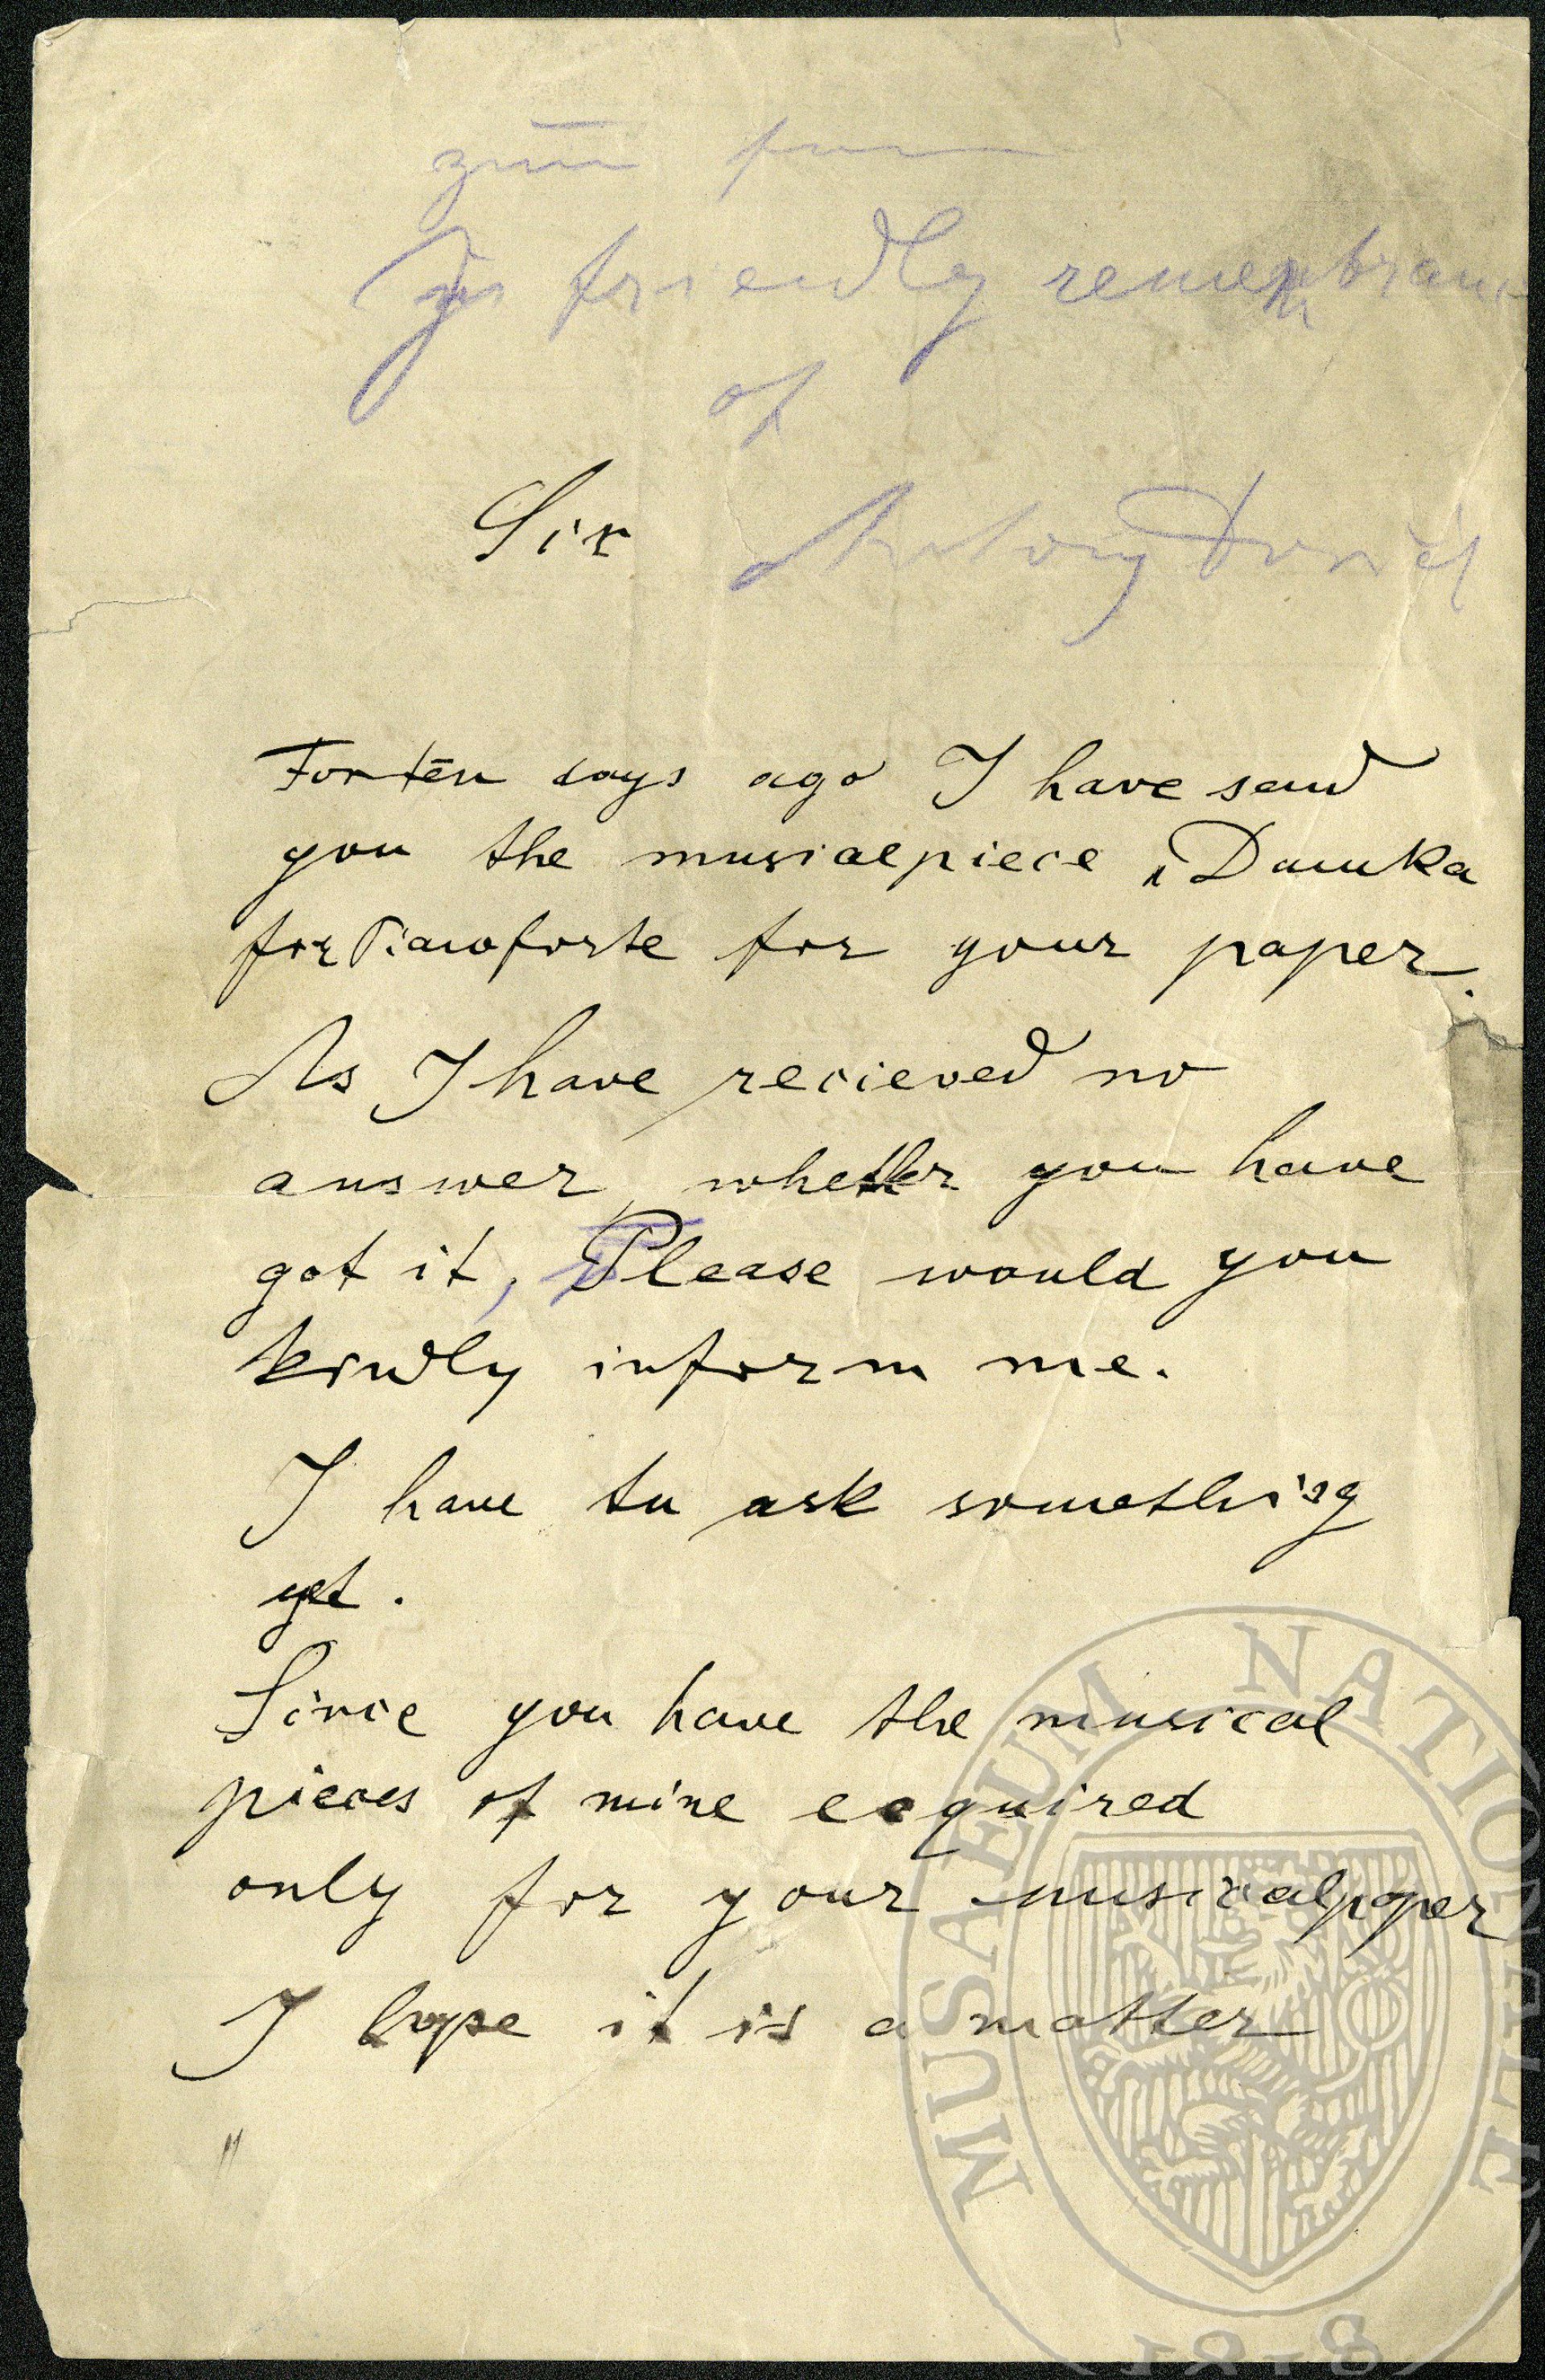 In friendly remembrance
of
Sir
Antonín Dvořák
Forten days ago I have send
you the musicalpiece „Dumka
for Pianoforte for your paper.
As I have recieved no
answer, whether you have
got it, Please would you
kindly inform me.
I have to ask something
yet.
Since you have the musical
pieces of mine eequired
only for your musicalpaper
I hope it is a matter
MUSAEUM NATIONALE
1818